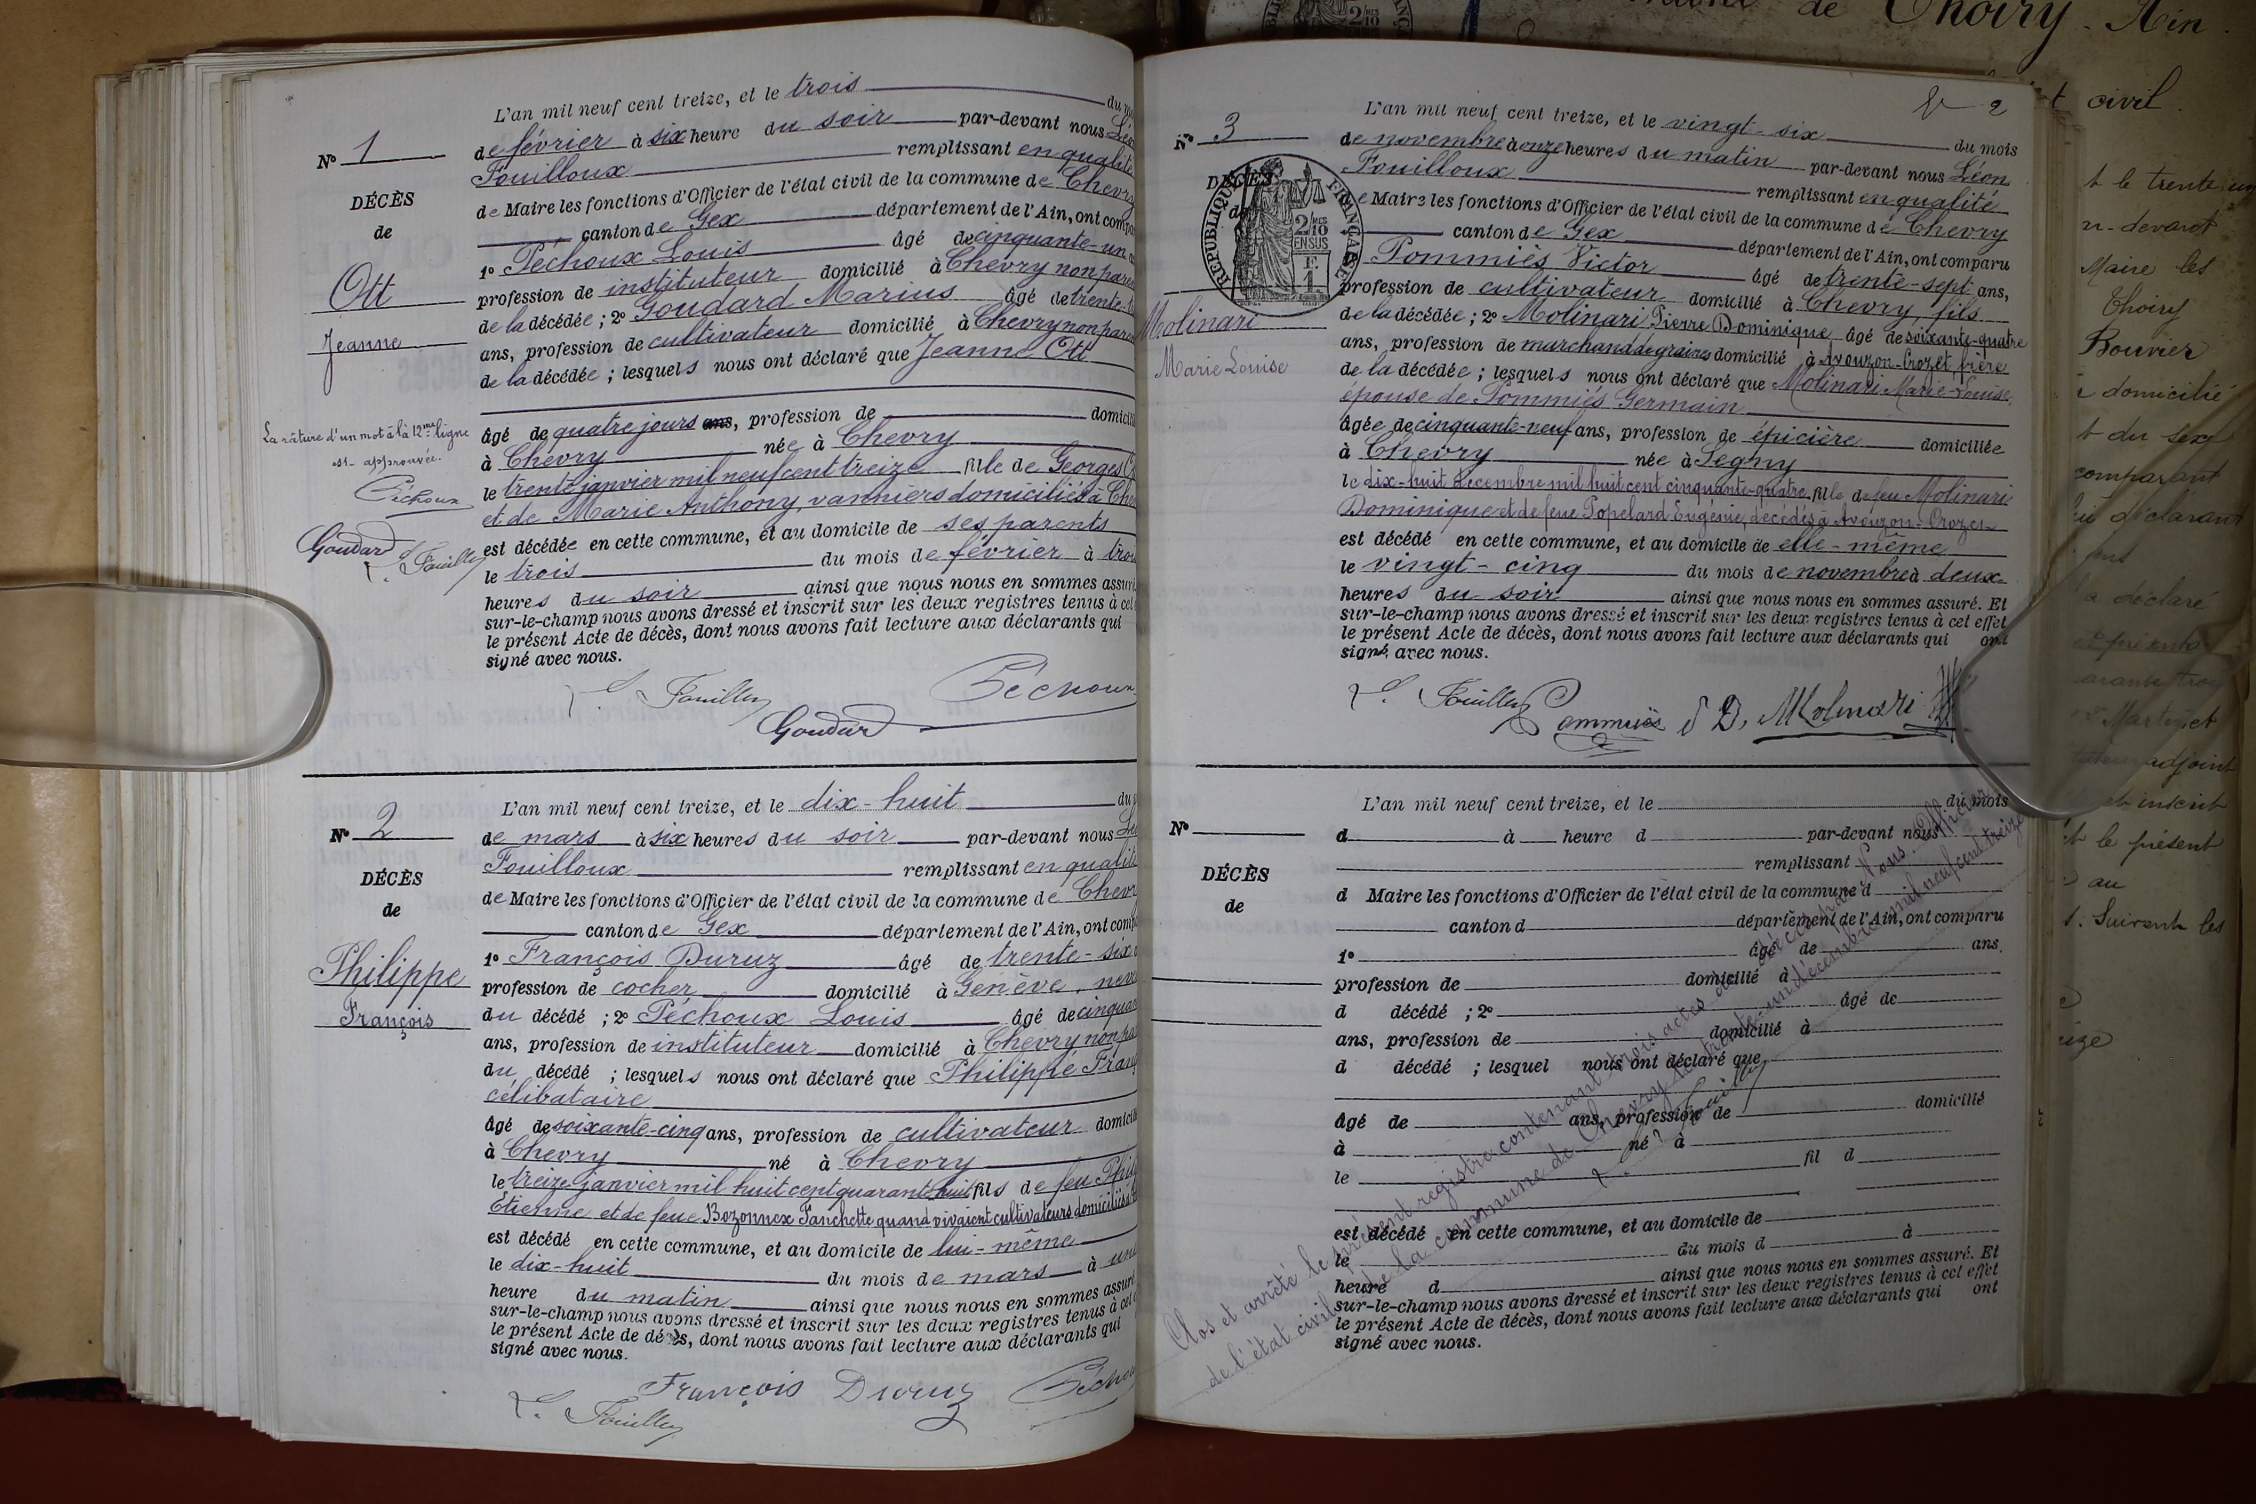 L'an mil neuf cent treize, et le trois du
No 1
de février à six heure du soir par-devant nous Léon
Fouilloux remplissant en qualité
DÉCÈS
de Maire les fonctions d'Officier de l'état civil de la commune de Chevry
de
canton de Gex département de l'Ain, ont comparu
1o Péchoux Louis âgé de cinquante-un
Ott
profession de instituteur domicilié à Chevry non parent
de la décédée ; 2o Goudard Marius âgé de trente-
Jeanne
ans, profession de cultivateur domicilié à Chevry non parent
de la décédée ; lesquels nous ont déclaré que Jeanne Ott
âgé de quatre jours ans, profession de domicilié
La râture d'un mot à la 12me ligne
est approuvée.
à Chevry née à Chevry
le trente janvier mil neuf cent treize fille de Georges
Péchoux
et de Marie Anthony, vanniers domiciliés à Chevry
Goudard L. Fouilloux
est décédée en cette commune, et au domicile de ses parents
le trois du mois de février à trois
heures du soir ainsi que nous nous en sommes assuré
sur-le-champ nous avons dressé et inscrit sur les deux registres tenus à cet
le présent Acte de décès, dont nous avons fait lecture aux déclarants qui
signé avec nous.
L. Fouilloux Péchoux
Goudard
L'an mil neuf cent treize, et le dix-huit du
No 2
de mars à six heures du soir par-devant nous Léon
Fouilloux remplissant en qualité
DÉCÈS
de Maire les fonctions d'Officier de l'état civil de la commune de Chevry
de
canton de Gex département de l'Ain, ont comparu
1o François Duruz âgé de trente-six
Philippe
profession de cocher domicilié à Genève, neveu
François
du décédé ; 2o Péchoux Louis âgé de cinquante
ans, profession de instituteur domicilié à Chevry non parent
du décédé ; lesquels nous ont déclaré que Philippe François
célibataire
âgé de soixante-cinq ans, profession de cultivateur domicilié
à Chevry né à Chevry
le treize janvier mil huit cent quarante huit fils de feu Philippe
Etienne et de feue Bozonnex Fanchette quand vivaient cultivateurs domiciliés à
est décédé en cette commune, et au domicile de lui-même
le dix-huit du mois de mars à une
heure du matin ainsi que nous nous en sommes assuré
sur-le-champ nous avons dressé et inscrit sur les deux registres tenus à cet
le présent Acte de décès, dont nous avons fait lecture aux déclarants qui
signé avec nous.
François Duruz Péchoux
L. Fouilloux
2
L'an mil neuf cent treize, et le vingt-six du mois
No 3
de novembre à onze heures du matin par-devant nous Léon
Fouilloux remplissant en qualité
DÉCÈS
de Maire les fonctions d'Officier de l'état civil de la commune de Chevry
RÉPUBLIQUE FRANÇAISE
2/10 EN SUS
F. 1
canton de Gex département de l'Ain, ont comparu
Pommiès Victor âgé de trente-sept ans,
profession de cultivateur domicilié à Chevry, fils
Molinari
de la décédée ; 2o Molinari Pierre Dominique âgé de soixante-quatre
ans, profession de marchand de grains domicilié à Avouzon-Crozet, frère
Marie Louise
de la décédée ; lesquels nous ont déclaré que Molinari Marie-Louise,
épouse de Pommiés Germain
âgée de cinquante-neuf ans, profession de épicière domiciliée
à Chevry née à Segny
le dix-huit décembre mil huit cent cinquante-quatre fille de feu Molinari
Dominique et de feue Popelard Eugénie, décédés à Avouzon-Crozet
est décédé en cette commune, et au domicile de elle-même
le vingt-cinq du mois de novembre à deux
heures du soir ainsi que nous nous en sommes assuré. Et
sur-le-champ nous avons dressé et inscrit sur les deux registres tenus à cet effet
le présent Acte de décès, dont nous avons fait lecture aux déclarants qui ont
signé avec nous.
L. Fouilloux Pommiés P D. Molinari
L'an mil neuf cent treize, et le du mois
No
d à heure d par-devant nous
remplissant
DÉCÈS
d Maire les fonctions d'Officier de l'état civil de la commune d
de
canton d département de l'Ain, ont comparu
1o âgé de ans
profession de domicilié à
d décédé ; 2o âgé de
ans, profession de domicilié à
d décédé ; lesquel nous ont déclaré que
âgé de ans, profession de domicilié
à né à
le fil d
est décédé en cette commune, et au domicile de
le du mois d à
heure d ainsi que nous nous en sommes assuré. Et
sur-le-champ nous avons dressé et inscrit sur les deux registres tenus à cet effet
le présent Acte de décès, dont nous avons fait lecture aux déclarants qui ont
signé avec nous.
Clos et arrêté le présent registre contenant trois actes de décès par Nous Officier
de l'état civil de la commune de Chevry le trente-un décembre mil neuf cent treize
L. Fouilloux
de Thoiry - Ain.
civil.
t le trente un
n-devant
Maire les
Thoiry
Bouvier
domicilié
t du sexe
comparant
déclarant
déclaré
adjoint
et inscrit
t le présent
au
t. Suivent les